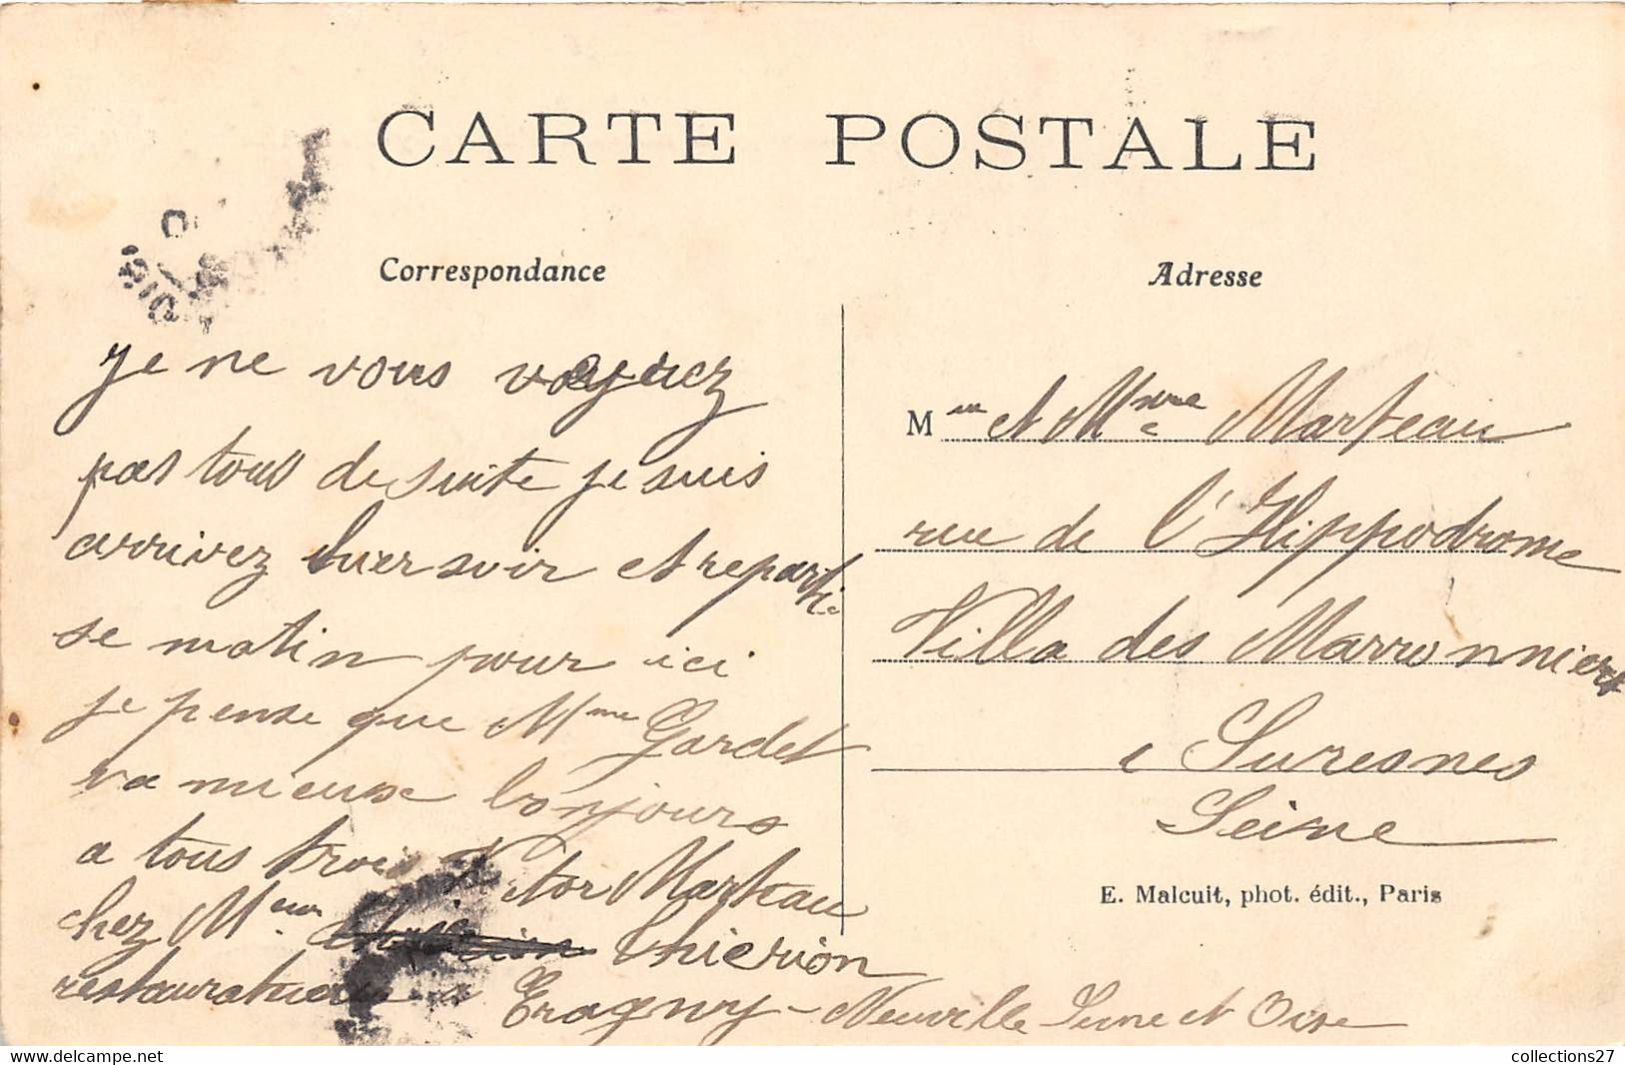 CARTE POSTALE
Correspondance
Adresse
je ne vous voyuez
pas tous de suite je suis
arrivez huer soir et reparti
se matin pour ici
je pense que Mme Gardet
va mieuse bonjours
a tous trois Victor Marteau
chez Meur Thierion
restaurateur a Eragny-Neuville Seine et Oise
Mur et Mme Marteau
rue de l'Hippodrome
Villa des Marronniers
a Suresnes
Seine
E. Malcuit, phot. édit., Paris
collections27